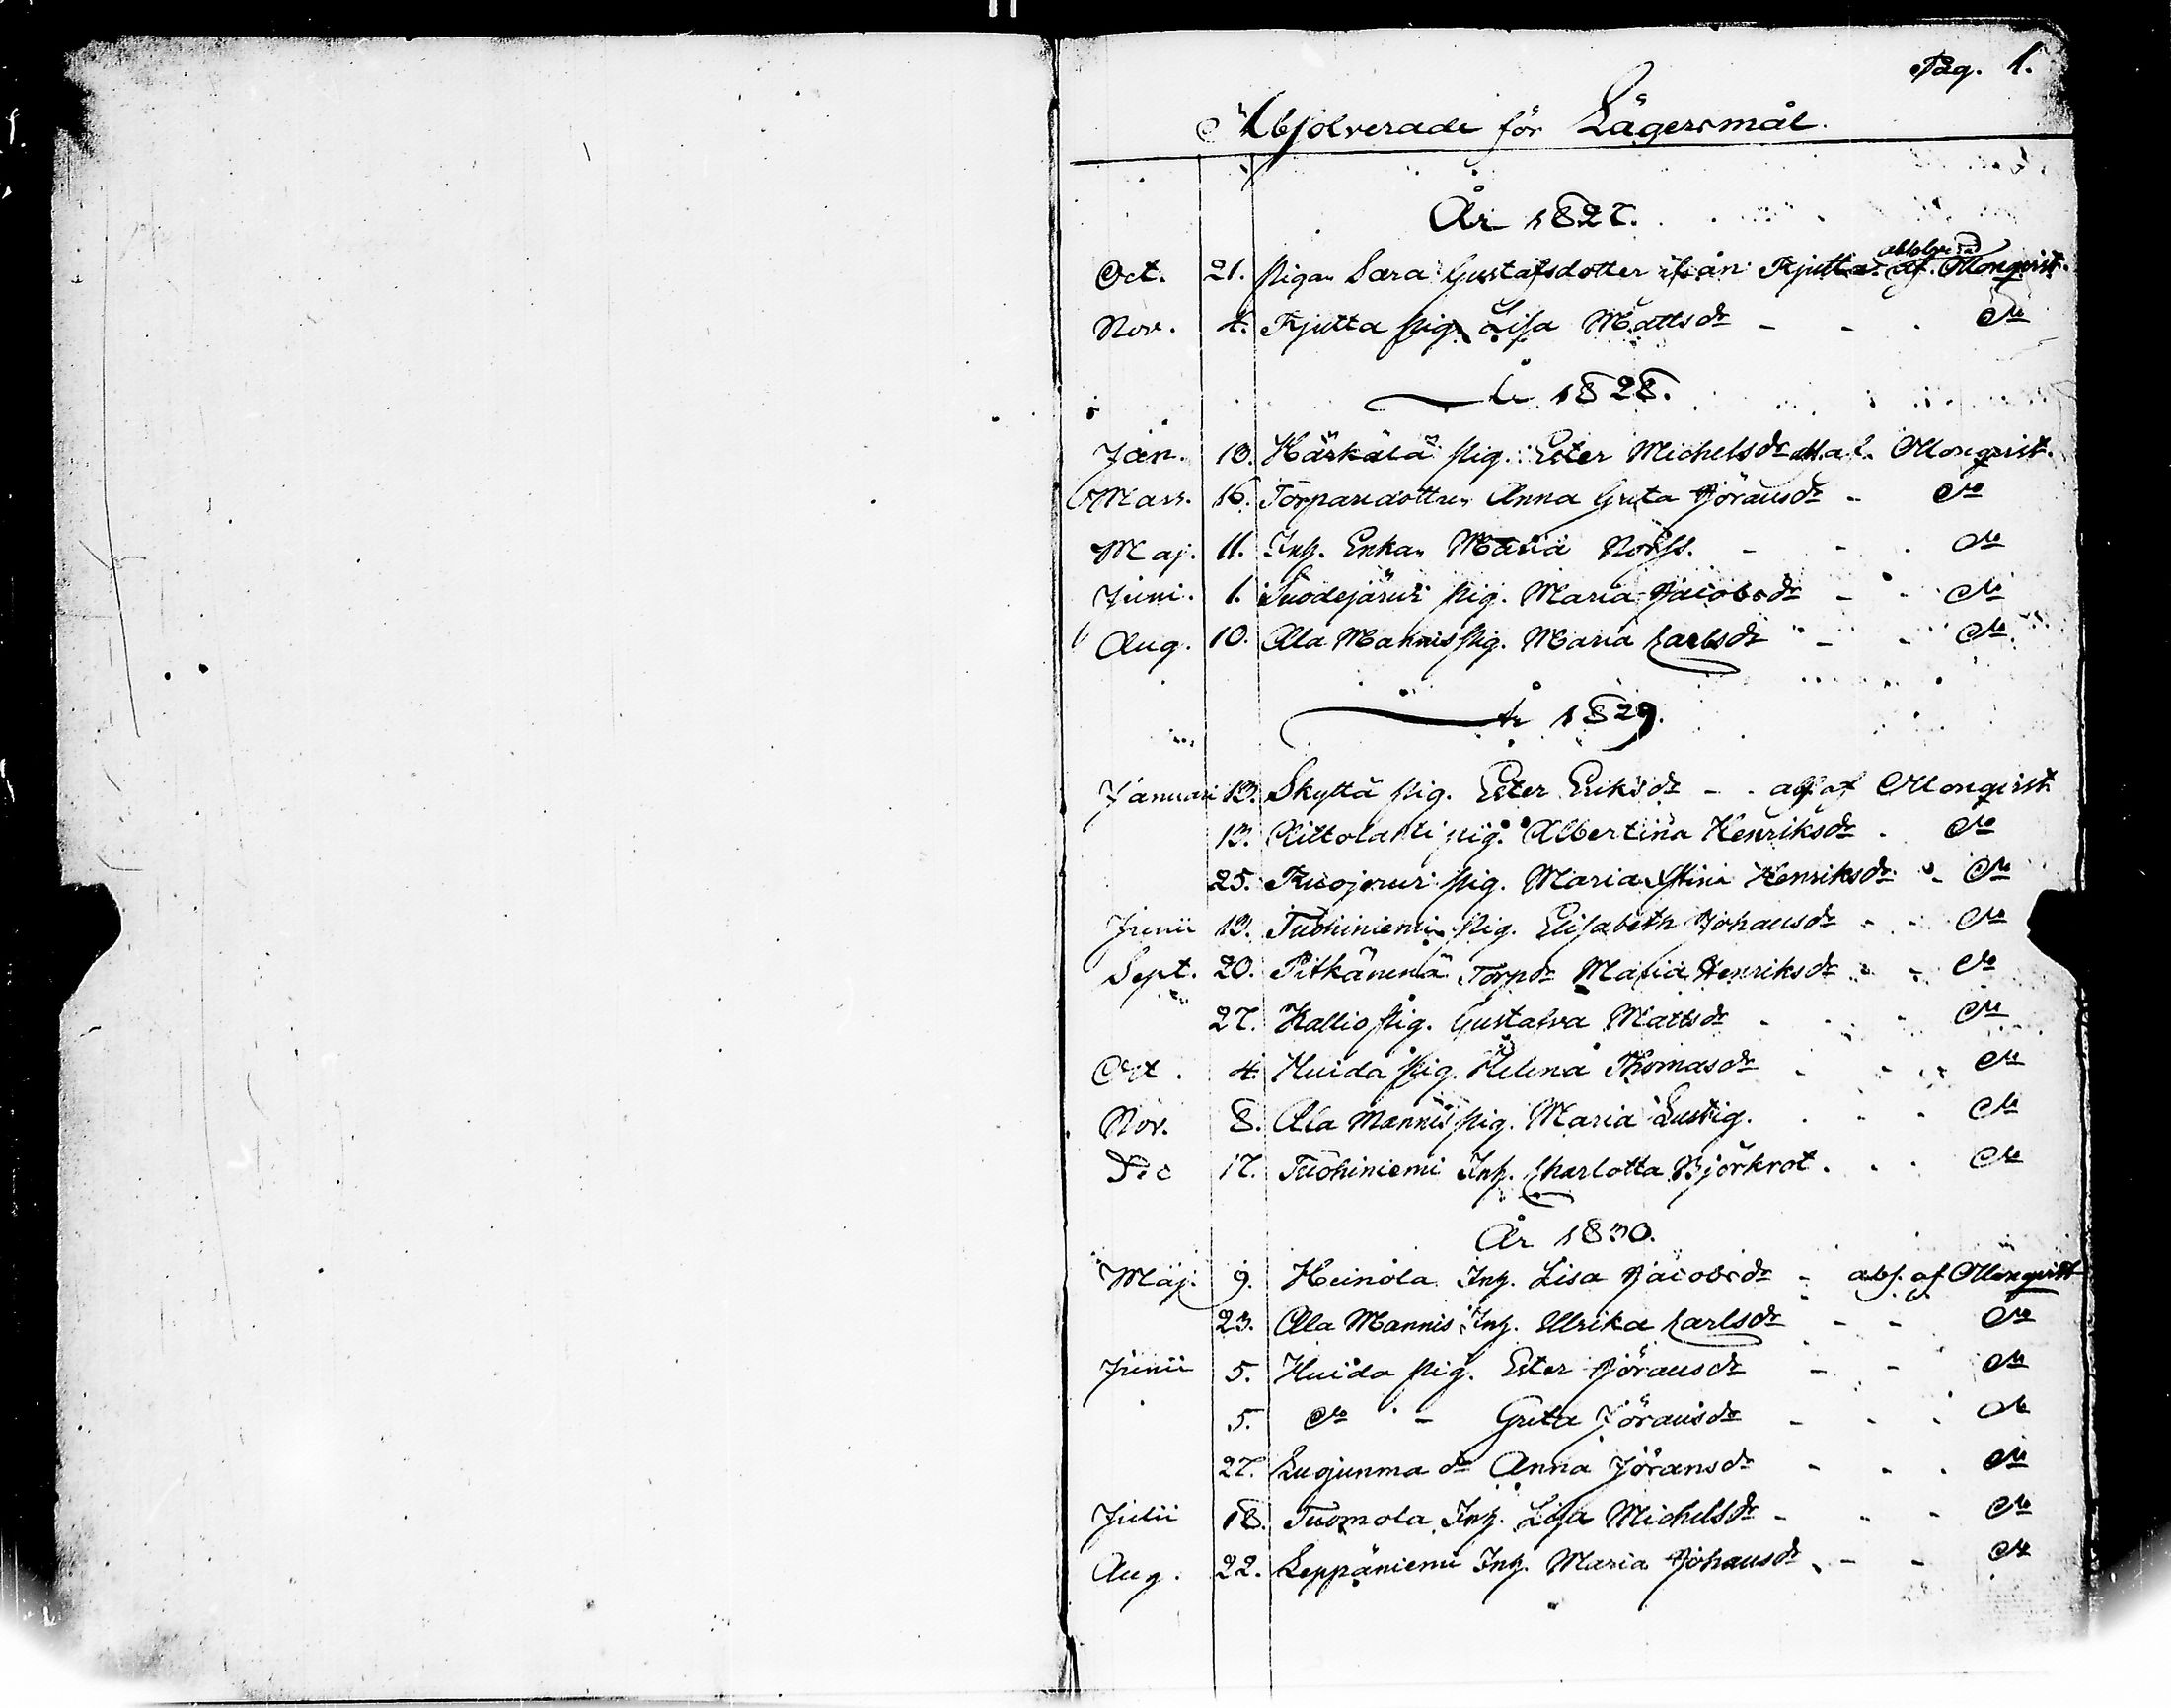 Pag. 1.
Absolverade för Lägersmål.
År 1827.
Oct. 21. Pigan Sara Gustafsdotter ifrån Kjutta absolverad af Ollonqvist.
Nov. 4. Kjutta Pig. Lisa Mattsdr - - - do
År 1828.
Jan. 13. Härkälä Pig. Ester Michelsdr Ollonqvist.
Mars. 16. Torparedottren Anna Greta Jöransdr - do
Maj. 11. Inh. Enkan Maria - - - do
Juni. 1. Pig. Maria Jacobsdr - - do
Aug. 10. Ala Mannis Pig. Maria Carlsdr - - do
År 1829.
Januari 13. Skyttä Pig. Ester Eriksdr - - abs. af Ollonqvist
13. Pig. Albertina Henriksdr - do
25. Pig. Maria Stina Henriksdr - do
Junii 13. Tuohiniemi Pig. Elisabeth Johansdr - - do
Sept. 20. Pitkänenä Torpdr Maria Henriksdr - - do
27. Kallio Pig. Gustafva Mattsdr - - - do
Oct. 4. Huida Pig. Helena Thomasdr - - - do
Nov. 8. Ala Mannis Pig. Maria Lustig. - - - do
Dec 17. Tuohiniemi Inh. Charlotta Björkrot. - - do
År 1830.
Maj. 9. Heinola Inh. Lisa Jacobsdr - abs. af Ollonqvist
23. Ala Mannis Inh. Ulrika Carlsdr - - do
Junii 5. Huida Pig. Ester Jöransdr - - do
5. do - Greta Jöransdr - - - do
27. dr Anna Jöransdr - - - do
Julii 18. Tuomola Inh. Lisa Michelsdr - - - do
Aug. 22. Leppäniemi Inh. Maria Johansdr - - - do